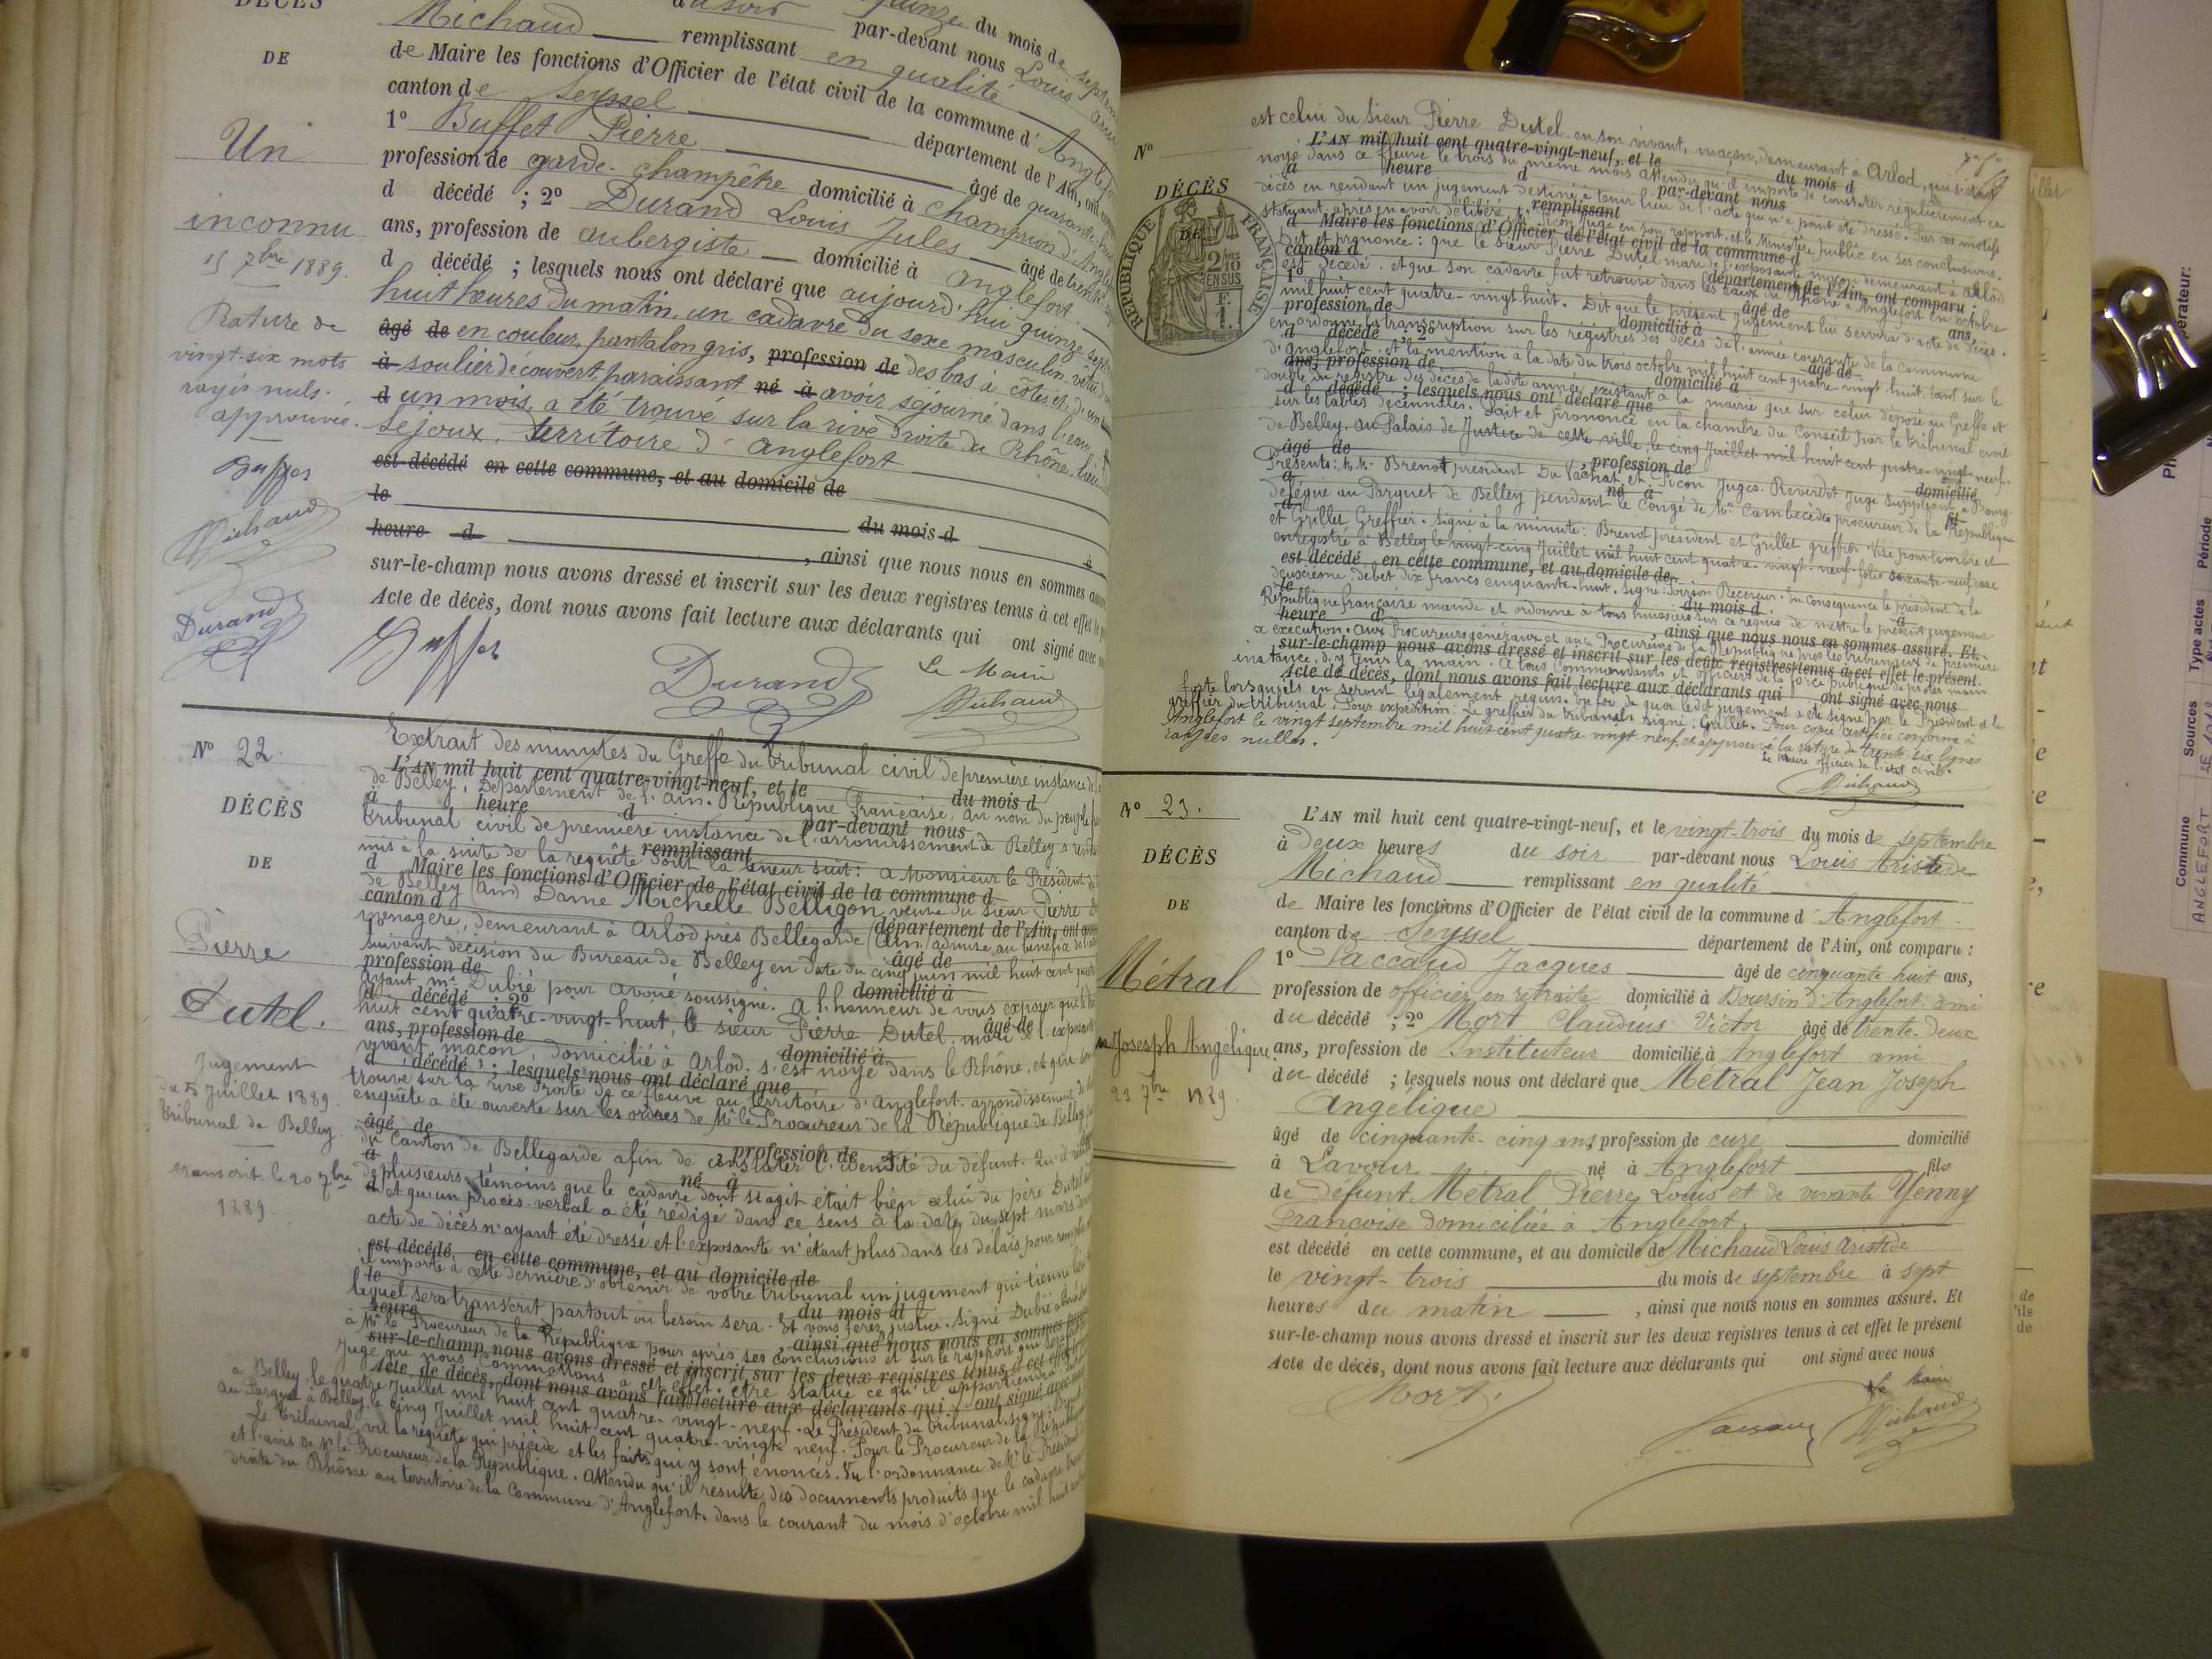 DÉCÈS
DE
Un
inconnu
15 7bre 1889.
Rature de
vingt-six mots
rayés nuls.
approuvée.
Buffet
Michaud
Durand
quinze du mois de septem
Michaud remplissant par-devant nous Louis
de Maire les fonctions d'Officier de l'état civil de la commune d'Anglefo
en qualité
canton de Seyssel département de l'Ain, ont
1° Buffet Pierre âgé de quarante-huit
profession de garde-champêtre domicilié à Champrion d'Anglef
d décédé ; 2° Durand Louis Jules âgé de trente
ans, profession de aubergiste domicilié à Anglefort
d décédé ; lesquels nous ont déclaré que aujourd'hui quinze sept
huit heures du matin, un cadavre du sexe masculin, vêtu d
âgé de en couleur, pantalon gris, profession de des bas à côtes et d'un
à soulier découvert, paraissant né à avoir séjourné dans l'eau
d un mois, a été trouvé sur la rive droite du Rhône, lieu
Sejoux, territoire d'Anglefort
est décédé en cette commune, et au domicile de
le du mois d à
heure d , ainsi que nous nous en sommes
sur-le-champ nous avons dressé et inscrit sur les deux registres tenus à cet effet le
Acte de décès, dont nous avons fait lecture aux déclarants qui ont signé avec
Buffet Durand Le Maire
Michaud
N° 22.
DÉCÈS
DE
Pierre
Dutel.
Jugement
du 5 Juillet 1889.
tribunal de Belley.
transcrit le 20 7bre
1889.
Extrait des minutes du Greffe du tribunal civil de première instance de
L'AN mil huit cent quatre-vingt-neuf, et le du mois d
de Belley, Département de l'Ain. République Française, au nom du peuple
à heure d par-devant nous
tribunal civil de première instance de l'arrondissement de Belley a rendu
remplissant
mis à la suite de la requête dont la teneur suit : A Monsieur le Président
d Maire les fonctions d'Officier de l'état civil de la commune d
de Belley (Ain) Dame Michelle Belligon, veuve du sieur Pierre
canton d département de l'Ain, ont
ménagère, demeurant à Arlod près Bellegarde (Ain) admise au bénéfice de
âgé de
suivant décision du Bureau de Belley en date du cinq juin mil huit cent
profession de domicilié à
ayant Me Dubié pour avoué soussigné. A l'honneur de vous exposer que
d décédé ; 2° âgé de
huit cent quatre-vingt-huit, le sieur Pierre Dutel, mari de l'exposante
ans, profession de domicilié à
vivant maçon, domicilié à Arlod, s'est noyé dans le Rhône, et que son
d décédé ; lesquels nous ont déclaré que
trouvé sur la rive droite de ce fleuve au territoire d'Anglefort, arrondissement de
enquête a été ouverte sur les ordres de Mr le Procureur de la République de Belley
âgé de profession de
du Canton de Bellegarde afin de constater l'identité du défunt. Qu'il résulte
à né à
de plusieurs témoins que le cadavre dont s'agit était bien celui du père Dutel
d et qu'un procès-verbal a été rédigé dans ce sens à la date du sept mars
acte de décès n'ayant été dressé et l'exposante n'étant plus dans les délais pour
est décédé en cette commune, et au domicile de
il importe à cette dernière d'obtenir de votre tribunal un jugement qui tienne lieu
le du mois d
lequel sera transcrit partout où besoin sera. Et vous ferez justice. Signé Dubié
heure d , ainsi que nous nous en sommes
à Mr le Procureur de la République pour après ses conclusions et sur le rapport qui sera
sur-le-champ nous avons dressé et inscrit sur les deux registres tenus à cet effet
Juge que nous commettons à cet effet, être statué ce qu'il appartiendra
Acte de décès, dont nous avons fait lecture aux déclarants qui ont signé avec
à Belley le quatre Juillet mil huit cent quatre-vingt-neuf. Le Président du tribunal. signé :
Au Parquet à Belley, le cinq Juillet mil huit cent quatre-vingt neuf. Pour le Procureur de la République
Le tribunal, vu la requête qui précède et les faits qui y sont énoncés. Vu l'ordonnance de Mr le Président
et l'avis de Mr le Procureur de la République. Attendu qu'il résulte des documents produits que le cadavre
droite du Rhône au territoire de la Commune d'Anglefort, dans le courant du mois d'octobre mil huit
N°
DÉCÈS
DE
RÉPUBLIQUE FRANÇAISE
2/10 EN SUS
est celui du sieur Pierre Dutel, en son vivant, maçon, demeurant à Arlod, qui s'était
L'AN mil huit cent quatre-vingt-neuf, et le du mois d
noyé dans ce fleuve le trois du même mois. Attendu qu'il importe de constater régulièrement ce
à heure d par-devant nous
décès en rendant un jugement destiné à tenir lieu de l'acte qui n'a point été dressé. Par ces motifs
remplissant
statuant, après en avoir délibéré, Mr Sicon Juge en son rapport, et le Ministère public en ses conclusions.
d Maire les fonctions d'Officier de l'état civil de la commune d
Dit et prononce : que le sieur Pierre Dutel mari de l'exposante, maçon demeurant à Arlod
canton d département de l'Ain, ont comparu :
est décédé, et que son cadavre fut retrouvé dans les eaux du Rhône à Anglefort en octobre
1° âgé de ans,
mil huit cent quatre-vingt huit. Dit que le présent jugement lui servira d'acte de décès.
profession de domicilié à
en ordonne la transcription sur les registres des décès de l'année courante de la commune
d décédé ; 2° âgé de
d'Anglefort, et la mention à la date du trois octobre mil huit cent quatre-vingt-huit, tant sur le
ans, profession de domicilié à
double du registre des décès de la dite année existant à la mairie que sur celui déposé au Greffe et
d décédé ; lesquels nous ont déclaré que
sur les tables décennales. Fait et prononcé en la chambre du Conseil par le tribunal civil
de Belley, au Palais de Justice de cette ville, le cinq Juillet mil huit cent quatre-vingt-neuf.
âgé de , profession de domicilié
Présents : M.M. Brenot président Du Vachat et Sicon Juges. Reverdet Juge suppléant à Bourg
à né à fil
délégué au Parquet de Belley pendant le Congé de Mr Cambecédes procureur de la République
d
et Grillet Greffier. Signé à la minute : Brenot président et Grillet greffier. Visé pour timbre et
enregistré à Belley le vingt-cinq Juillet mil huit cent quatre-vingt-neuf folio soixante-neuf case
est décédé en cette commune, et au domicile de
deuxième, débet dix francs cinquante-huit. Signé : Poirson Receveur. En conséquence le président de la
le du mois d à
République française mande et ordonne à tous huissiers sur ce requis de mettre le présent jugement
heure d , ainsi que nous nous en sommes assuré. Et
à exécution. Aux Procureurs généraux et aux Procureurs de la République près les tribunaux de première
sur-le-champ nous avons dressé et inscrit sur les deux registres tenus à cet effet le présent.
instance, d'y tenir la main. A tous Commandants et officiers de la force publique de prêter main
Acte de décès, dont nous avons fait lecture aux déclarants qui ont signé avec nous
forte lorsqu'ils en seront légalement requis. En foi de quoi le dit jugement a été signé par le Président et le
greffier du tribunal. Pour expédition : Le greffier du tribunal, signé : Grillet. Pour copie certifiée conforme à
Anglefort le vingt septembre mil huit cent quatre vingt neuf, et approuvé la rature de trente-six lignes
rayées nulles. Le Maire officier de l'état civil.
Michaud
N° 23.
DÉCÈS
DE
Métral
Joseph Angélique
23 7bre 1889.
L'AN mil huit cent quatre-vingt-neuf, et le vingt-trois du mois de septembre
à deux heures du soir par-devant nous Louis Aristide
Michaud remplissant en qualité
de Maire les fonctions d'Officier de l'état civil de la commune d'Anglefort
canton de Seyssel département de l'Ain, ont comparu :
1° Saccaud Jacques âgé de cinquante huit ans,
profession de officier en retraite domicilié à Boursin d'Anglefort ami
du décédé ; 2° Mort Claudius Victor âgé de trente-deux
ans, profession de Instituteur domicilié à Anglefort ami
du décédé ; lesquels nous ont déclaré que Métral Jean Joseph
Angélique
âgé de cinquante-cinq ans, profession de curé domicilié
à Lavour né à Anglefort fils
de défunt Métral Pierre Louis et de vivante Yenny
Françoise domiciliée à Anglefort,
est décédé en cette commune, et au domicile de Michaud Louis Aristide
le vingt-trois du mois de septembre à sept
heures du matin , ainsi que nous nous en sommes assuré. Et
sur-le-champ nous avons dressé et inscrit sur les deux registres tenus à cet effet le présent
Acte de décès, dont nous avons fait lecture aux déclarants qui ont signé avec nous
Mort. Le Maire
Michaud
Commune Sources Type actes Période
ANGLEFORT